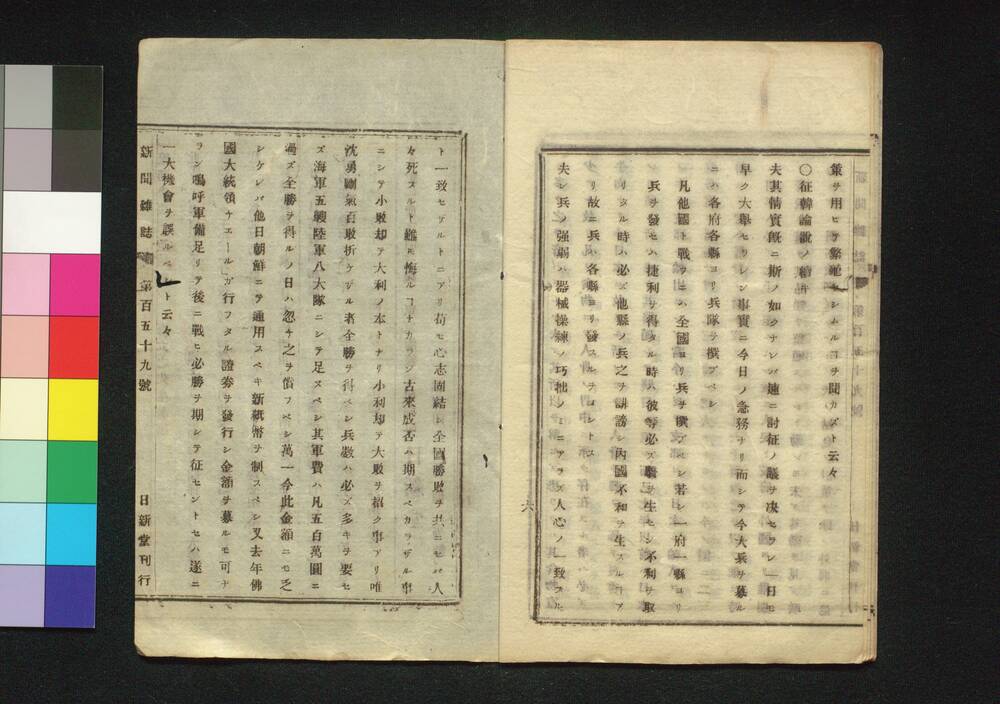 策ヲ用ヒテ繁雑セシムルコヲ聞カズト云々
〇征韓論説ノ續キ
夫其情實既ニ斯ノ如クナレバ速ニ討征ノ議ヲ决セラレ一日モ
早ク大擧セラレン事實ニ今日ノ急務ナリ而シテ今大兵ヲ募ル
ニハ各府各縣ヨリ兵隊ヲ撰ブベシ
凡他國ト戰ヲニハ全國ヨリ兵ヲ撰ブベシ若シ一府一縣ヨリ
兵ヲ發セハ捷利ヲ得タル時ハ彼等必ズ驕ヲ生セシ不利ヲ取
リタル時ハ必ズ他縣ノ兵之ヲ誹謗シ内國不和ヲ生スルコア
リ故ニ兵ハ各縣ヨリ發スルヲヨシトス
夫レ兵ノ强弱ハ器械操練ノ巧拙ノミニアラズ人心ノ一致スル
六
ト一致セザルトニアリ苟モ心志固結シ全國勝敗ヲ共ニセバ人
々死スルト雖モ悔ルコナカラン古來成否ハ期スベカラザル事
ニシテ小敗却テ大利ノ本トナリ小利却テ大敗ヲ招ク事アリ唯
沈勇剛氣百敗折ケザル者全勝ヲ得ベシ兵數ハ必ズ多キヲ要セ
ズ海軍五艘陸軍八大隊ニシテ足ヌベシ其軍費ハ凡五百萬圓ニ
過ズ全勝ヲ得ルノ日ハ忽チ之ヲ償フベシ萬一今此金額ニモ乏
シケレバ他日朝鮮ニテ通用スベキ新紙幣ヲ制スベシ又去年佛
國大統領チエールガ行フタル證券ヲ發行シ金額ヲ募ルモ可ナ
ラン嗚呼軍備足リテ後ニ戰ヒ必勝ヲ期シテ征セントセハ遂ニ
一大機會ヲ誤ルベシト云々
新聞雜誌 第百五十九號 日新堂刊行